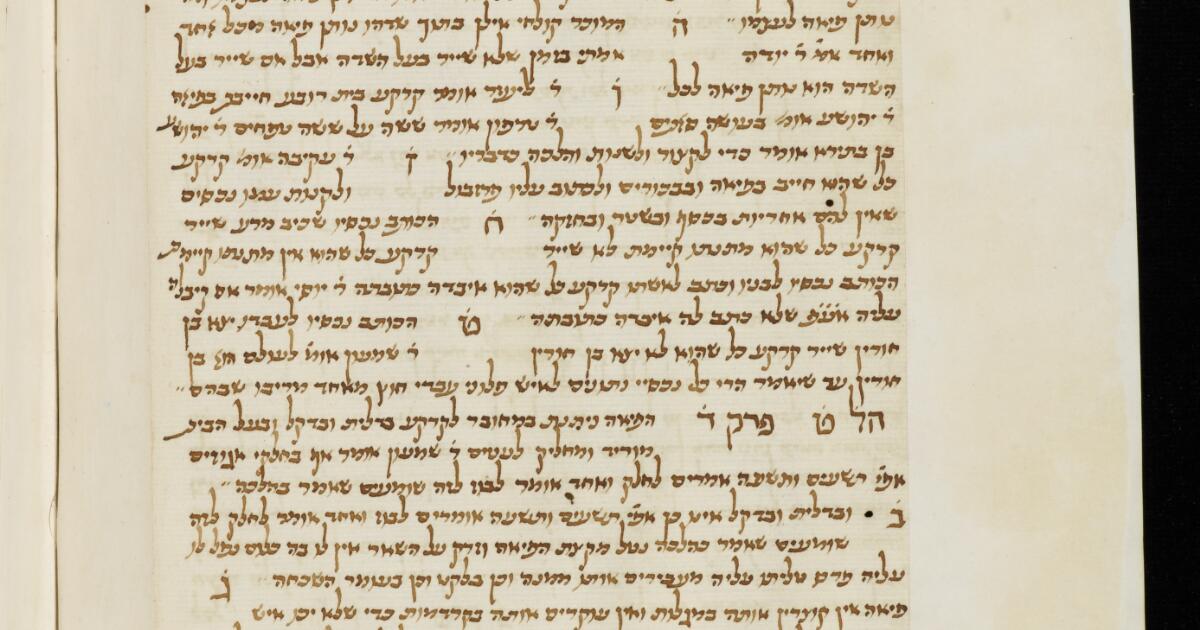 נותן פיאה לעצמו ׃ ה המוכר קולחי אילן בתוך שדהו נותן פיאה מכל אחד
ואחד אמ׳ ר׳ יודה אמתי בזמן שלא שייר בעל השדה אבל אם שייר בעל
השדה הוא נותן פיאה לכל ׃ ו ר׳ ליעזר אומר קרקע בית רובע חייבת בפיאה
ר׳ יהושע אומ׳ בעושה סאתים ר׳ טרפון אומר ששה על ששה טפחים ר׳ יהושע
בן בתירא אומר כדי לקצור ולשנות והלכה כדבריו ׃ ז ר׳ עקיבה אומ׳ קרקע
כל שהוא חייב בפיאה ובבכורים ולכתוב עליו פרוזבול ולקנות עמו נכסים
שאין להם אחריות בכסף ובשטר ובחזקה ׃ ח הכותב נכסיו שכיב מרע שייר
קרקע כל שהוא מתנתו קיימת לא שייר קרקע כל שהוא אין מתנתו קיימת
הכותב נכסיו לבניו וכתב לאשתו קרקע כל שהוא איבדה כתובתה ר׳ יוסי אומר אם קיבלה
עליה אע״פ שלא כתב לה איבדה כתובתה ׃ ט הכותב נכסיו לעבדו יצא בן
חורין שייר קרקע כל שהוא לא יצא בן חורין ר׳ שמעון אומ׳ לעולם הוא בן
חורין עד שיאמר הרי כל נכסיי נתונים לאיש פלוני עבדי חוץ מאחד מריבו שבהם ׃
הל׳ ט פרק ד׳ הפיאה ניתנת במחובר לקרקע בדלית ובדקל ובעל הבית
מוריד ומחליק לעניים ר׳ שמעון אומר אף בחלקי אגוזים
אפ׳ תשעים ותשעה אמרים לחלק ואחד אומר לבוז לזה שומעים שאמר כהלכה ׃
ב ובדלית ובדקל אינו כן אפ׳ תשעים ותשעה אומרים לבוז ואחד אומר לחלק לזה
שומעים שאמר כהלכה נטל מקצת הפיאה וזרק על השאר אין לו בה כלום נפל לו
עליה פרס טליתו עליה מעבירים אותו ממנה וכן בלקט וכן בעומר השכחה ג
פיאה אין קוצרין אותה במגלות ואין עוקרים אותה בקרדמות כדי שלא יכו איש